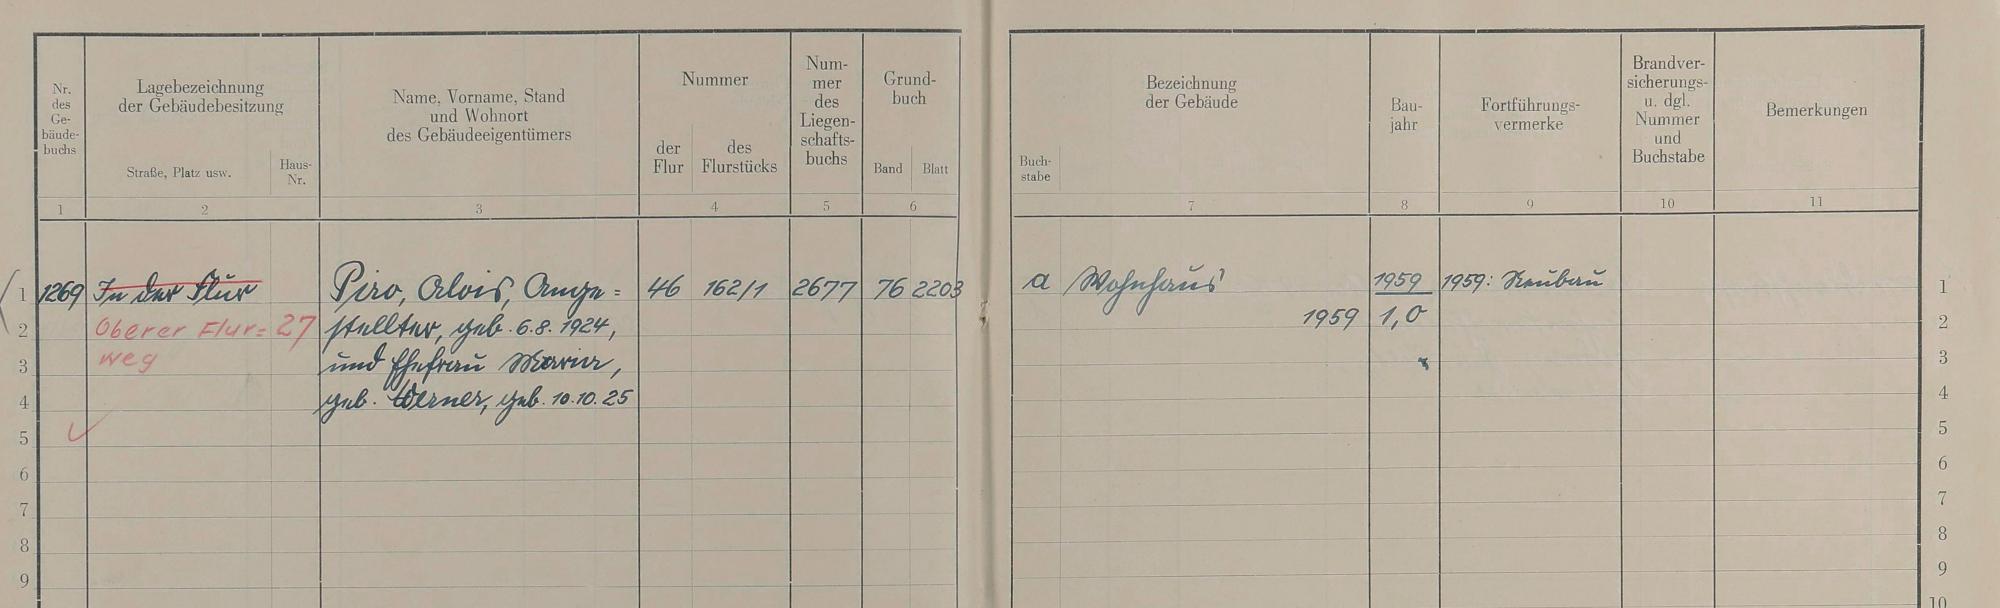 Nr. des Ge- bäude- buchs
Lagebezeichnung
der Gebäudebesitzung
Straße, Platz usw.
Haus- Nr.
Name, Vorname, Stand
und Wohnort
des Gebäudeeigentümers
Nummer
der Flur
des Flurstücks
Num- mer des Liegen- schafts- buchs
Grund- buch
Band
Blatt
Bezeichnung
der Gebäude
Buch- stabe
Bau- jahr
Fortführungs- vermerke
Brandver- sicherungs- u. dgl. Nummer und Buchstabe
Bemerkungen
1 2 3 4 5 6 7 8 9 10 11
1 1269 In der Flur Piro, Alois, Ange= 46 162/1 2677 76 2203 a Wohnhaus 1959 1959: Neubau 1
2 Oberer Flur= 27 stellter, geb. 6.8.1924, 1959 1,0 2
3 weg und Ehefrau Maria, 3
4 geb. Werner, geb. 10.10.25 4
5 5
6 6
7 7
8 8
9 9
10